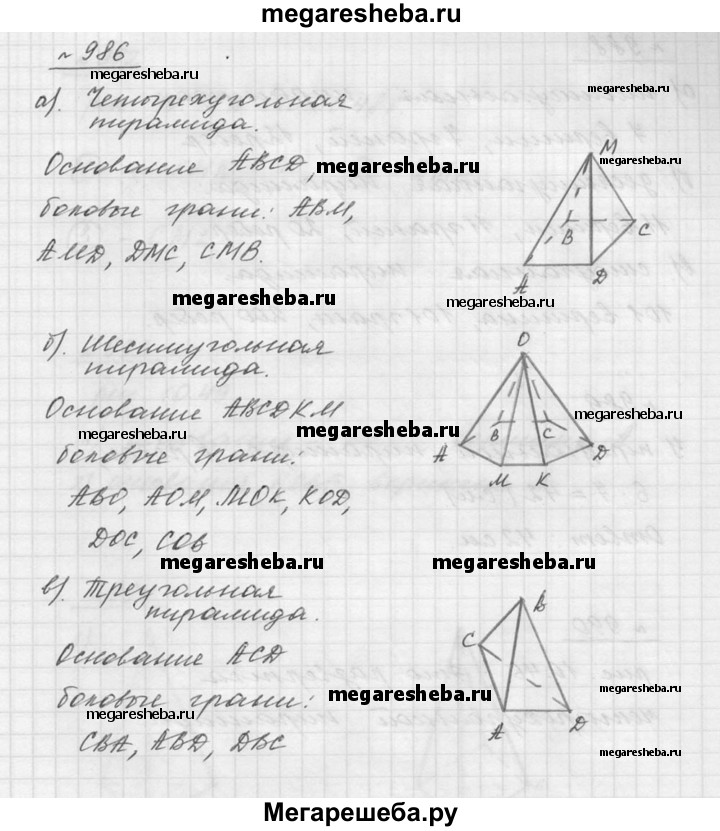 megaresheba.ru
№ 986
megaresheba.ru
megaresheba.ru
а). Четырехугольная
пирамида.
Основание ABCD,
megaresheba.ru
боковые грани: ABM,
AMD, DMC, CMB.
M
B
C
A
D
megaresheba.ru
megaresheba.ru
б). Шестиугольная
пирамида.
Основание ABCDKM
megaresheba.ru
megaresheba.ru
megaresheba.ru
боковые грани:
ABO, AOM, MOK, KOD,
DOC, COB
O
A
B
C
D
M
K
megaresheba.ru
megaresheba.ru
в). Треугольная
пирамида.
Основание ACD
боковые грани:
megaresheba.ru
megaresheba.ru
megaresheba.ru
CBA, ABD, DBC
B
C
A
D
megaresheba.ru
Мегарешеба.ру